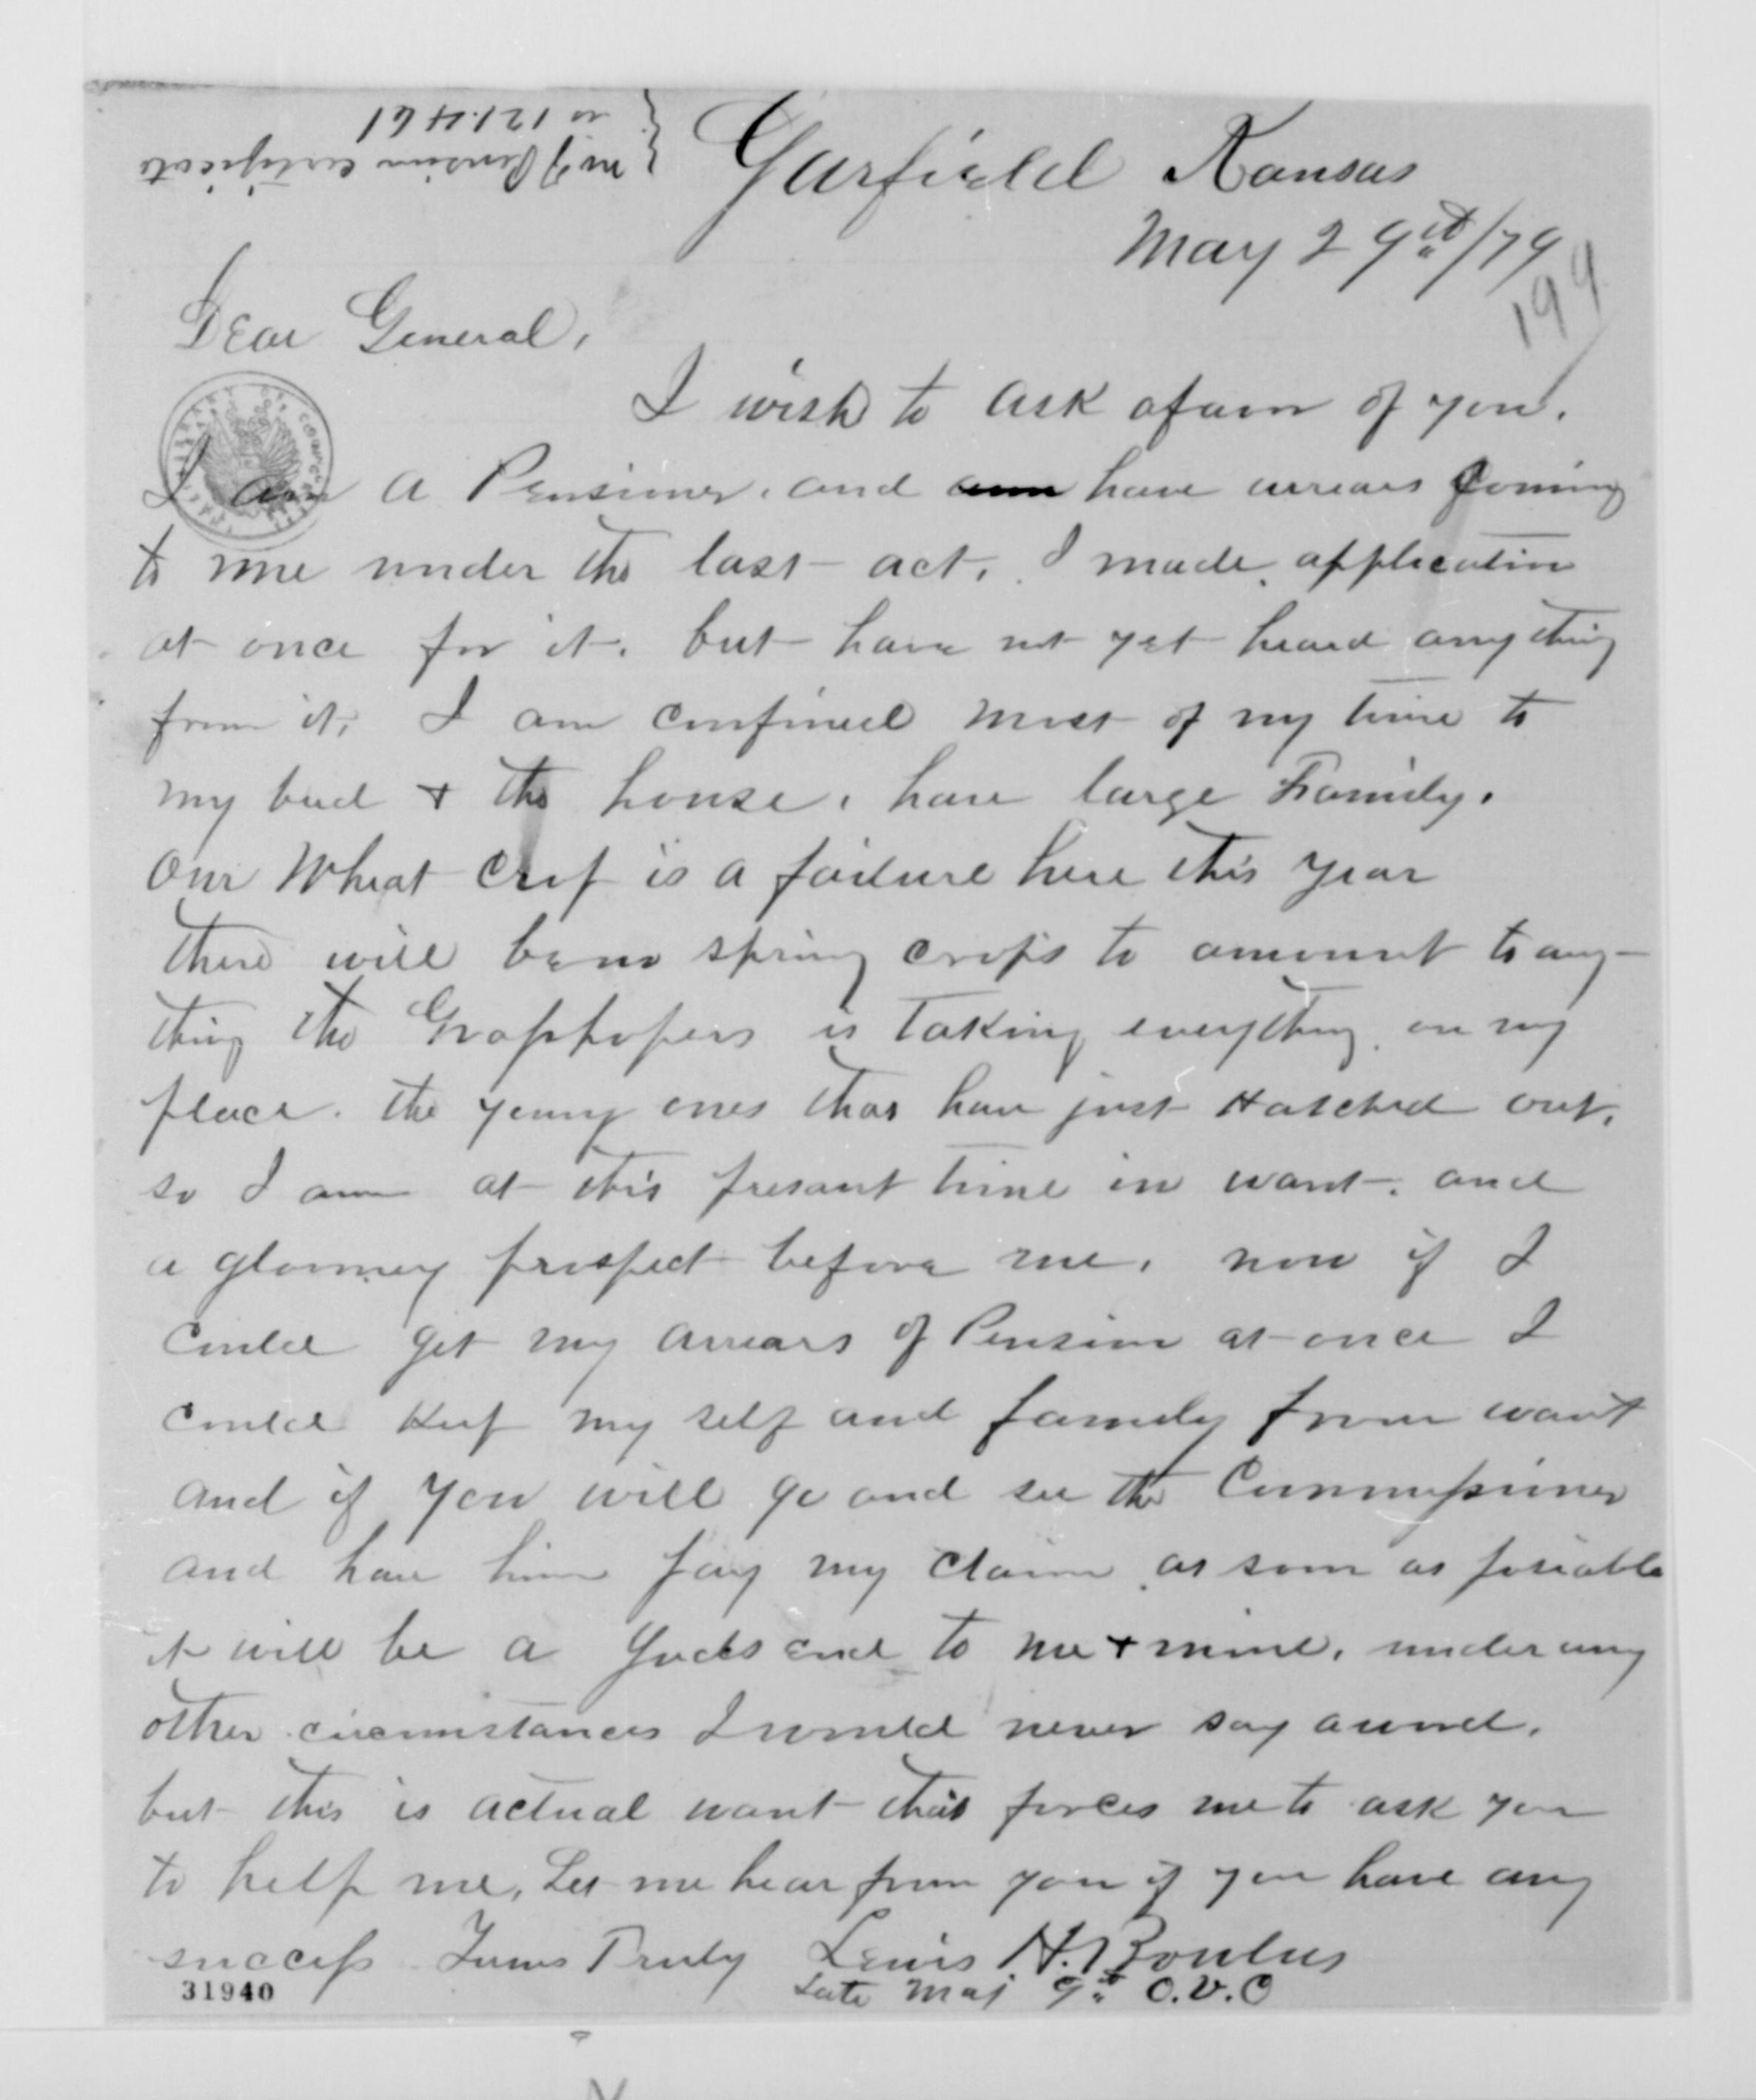 my Pension certificate
is 121.461
Garfield Kansas
May 29th/79
199
Dear General,
I wish to ask afavor of you.
I am a Pensioner, and am have arrears coming
to me under the last act. I made application
at once for it. but have not yet heard any thing
from it. I am confined most of my time to
my bed + the house, have large Family.
Our Wheat crop is a failure here this year
there will beno spring crops to amount to any-
thing the Grasshopers is taking everything on my
place. the young ones that have just Hatched out.
so I am at this presant time in want. and
a gloomey prospect before me. now if I
could get my arrears of Pension at once I
could keep my self and family from want
and if you will go and see the Commissioner
and have him pay my claim as soon as posiable
it will be a Gods end to me + mine, under any
other circumstances I would never say aword.
but this is actual want that forces me to ask you
to help me, Let me hear from you if you have any
success Yours Truly Lewis H. Bowlus
Late Maj 9th O.V.C
31940